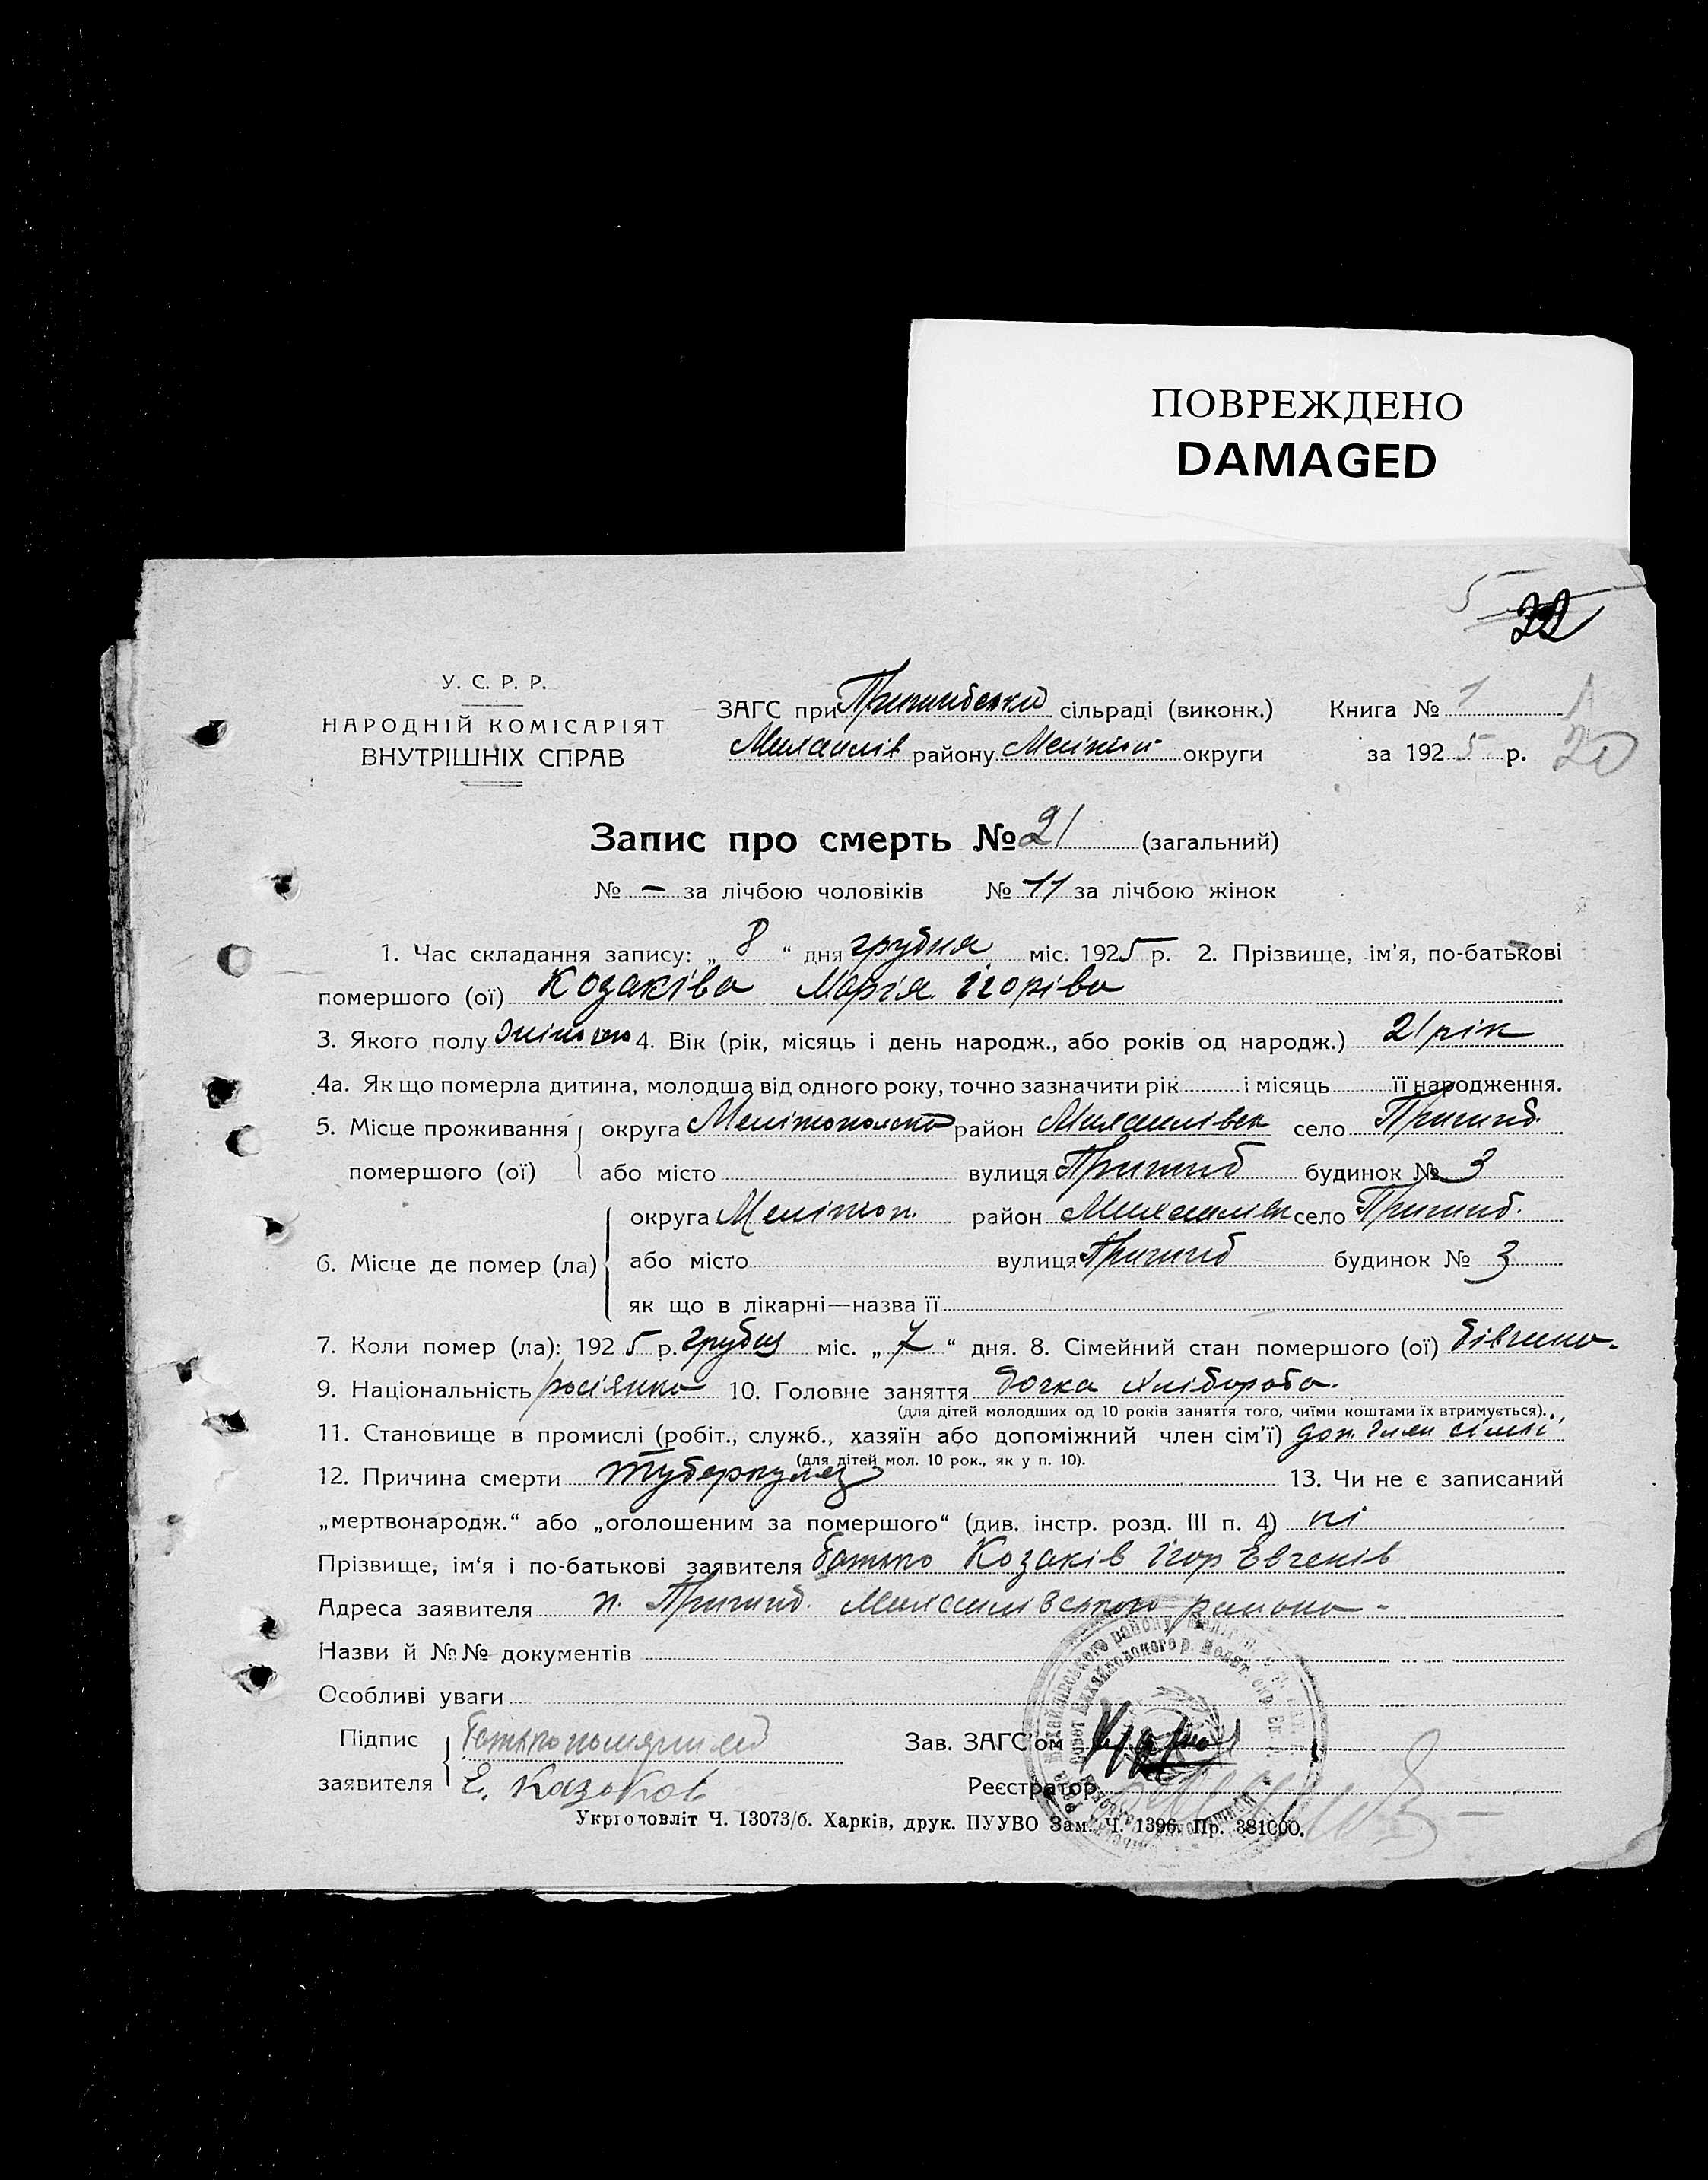 ПОВРЕЖДЕНО
DAMAGED
5
32
У. С. Р. Р.
НАРОДНІЙ КОМІСАРІЯТ
ВНУТРІШНІХ СПРАВ
ЗАГС при Пришибській сільраді (виконк.) Книга № 1
Михайлів району Мелітоп округи за 1925 р.
20
Запис про смерть № 21 (загальний)
№ – за лічбою чоловіків № 11 за лічбою жінок
1. Час складання запису: „ 8 “ дня грудня міс. 1925 р. 2. Прізвище, ім'я, по-батькові
помершого (ої) Козаківа Марія Ігоріва
3. Якого полу жіночого 4. Вік (рік, місяць і день народж., або років од народж.) 21 рік
4а. Як що померла дитина, молодша від одного року, точно зазначити рік і місяць її народження.
5. Місце проживання округа Мелітопольска район Михайлівск село Пришиб.
помершого (ої) або місто вулиця Пришиб будинок № 3
округа Мелітоп. район Михайлівск село Пришиб.
6. Місце де помер (ла) або місто вулиця Пришиб будинок № 3
як що в лікарні—назва її
7. Коли помер (ла): 1925 р. грудня міс. „ 7 “ дня. 8. Сімейний стан помершого (ої) дівчина.
9. Національність росіянка 10. Головне заняття дочка хлібороба.
(для дітей молодших од 10 років заняття того, чиїми коштами їх втримується).
11. Становище в промислі (робіт., служб., хазяїн або допоміжний член сім'ї) доп. член сімлі
(для дітей мол. 10 рок., як у п. 10).
12. Причина смерти туберкулез 13. Чи не є записаний
„мертвонародж.“ або „оголошеним за помершого“ (див. інстр. розд. III п. 4) ні
Прізвище, ім'я і по-батькові заявителя батько Козаків Ігор Евгенів
Адреса заявителя п. Пришиб. Михайлівського району -
Назви й №№ документів
Особливі уваги
Підпис Батько
заявителя Е. Казаков
Зав. ЗАГС'ом
Реєстратор
Укрголовліт Ч. 13073/б. Харків, друк. ПУУВО Зам. Ч. 1396. Пр. 381000.